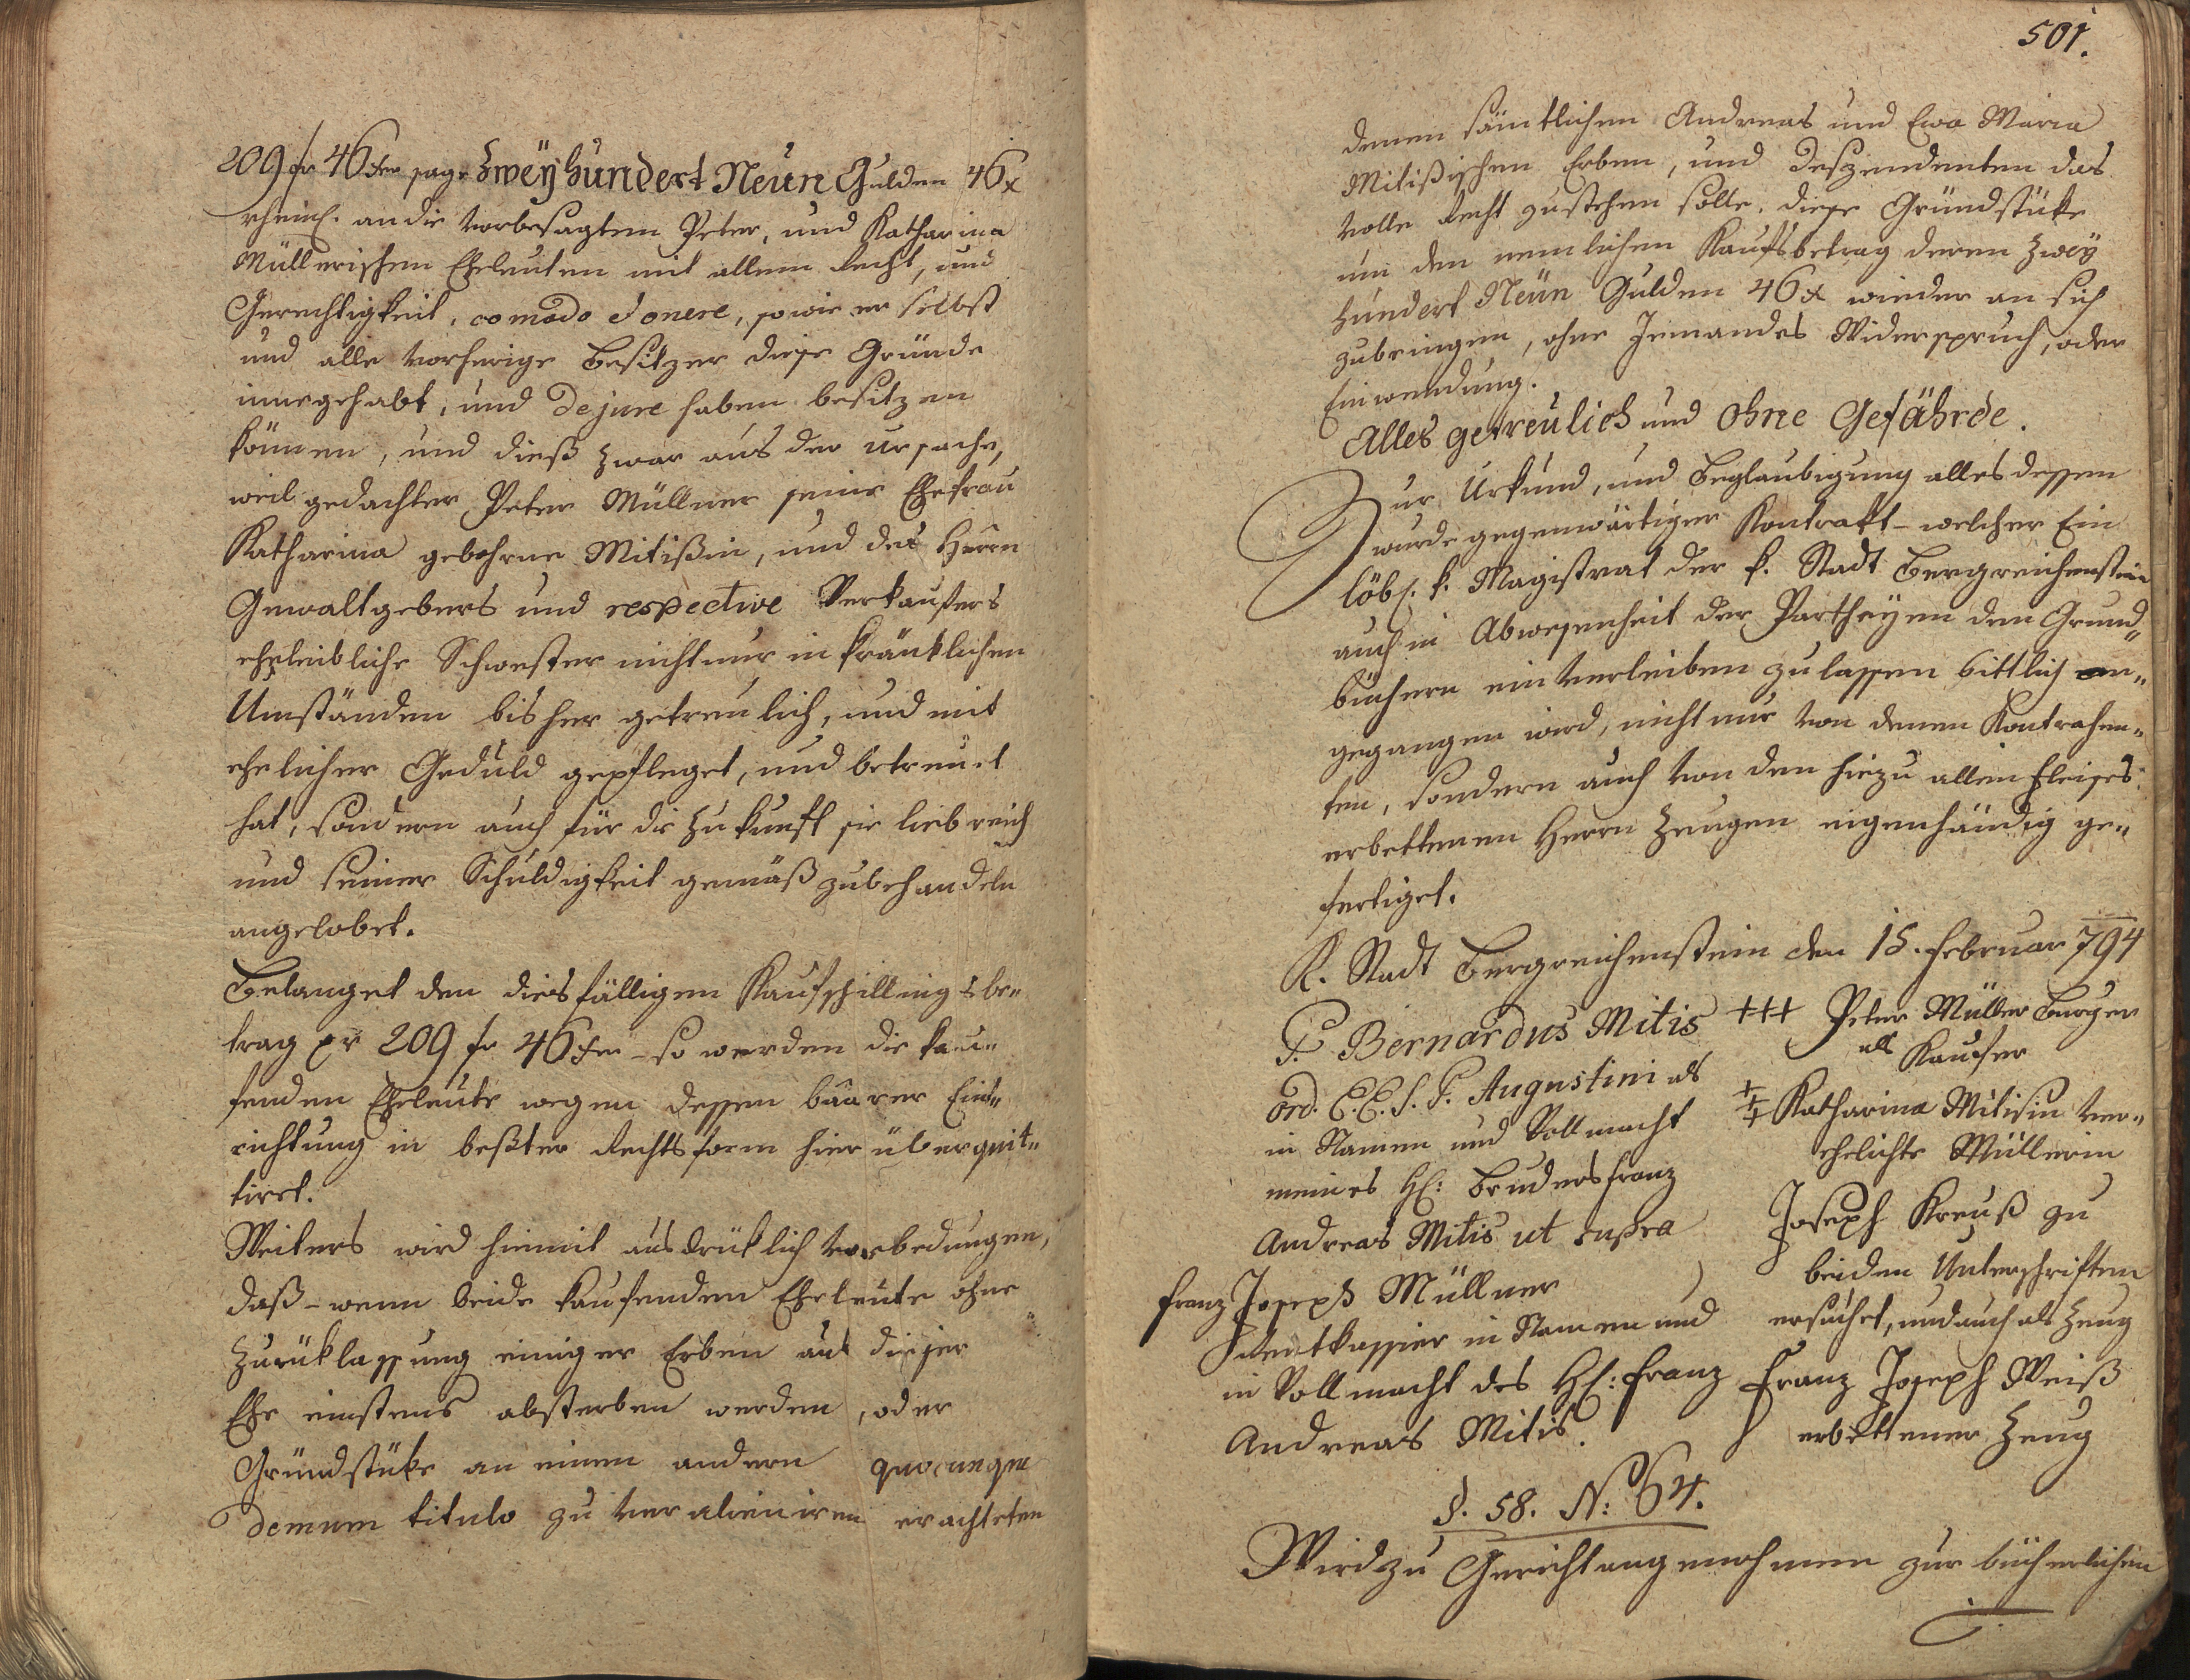 209 fr 46 xr sage Zweÿ hundert Neün Gulden 46 x
rheinl. an die vorbesagten Peter, und Katharina
Müllerischen Eheleuten mit allem Recht, und
Gerechtigkeit, comodo et onere, so wie er selbst
und alle vorherige Besitzer diese Gründe
innegehabt, und de jure haben besitzen
können, und dieß zwar aus der Ursache,
weil gedachter Peter Müllner seine Ehefrau
Katharina gebohrne Mitißin, und des Herrn
Gewaltgebers und respective Verkaufers
eheleibliche Schwester nicht nur in kränklichen
Umständen bisher getreulich, und mit
ehelicher Geduld gepfleget, und betreuet
hat, sondern auch für die Zukunft sie liebreich
und seiner Schuldigkeit gemäß zubehandeln
angelobet.
Belanget den diesfälligen Kaufschillingsbe„
trag pr 209 fr 46 xr – so werden die kau„
fenden Eheleute wegen dessen baarer Ent„
richtung in beßter Rechtsform hierüber quit„
tiret.
Weiters wird hiemit ausdrüklich vorbedungen,
daß – wenn beide kaufenden Eheleute ohne
Zurüklassung einiger Erben aus dieser
Ehe einstens absterben werden, oder
Gründstüke an einen andern quocunque
demum titulo zu veralieniren erachteten
501.
denen sämtlichen Andreas und Ewa Maria
Mitißischen Erben, und Deszendenten das
volle Recht zustehen solle, diese Gründstüke
um den nemlichen Kaufsbetrag deren Zweÿ
hundert Neün Gulden 46 x wieder an sich
zubringen, ohne Jemandes Widerspruch, oder
Einwendung.
Alles getreülich und ohne Gefährde.
Zur Urkund, und Beglaubigung alles dessen
wurde gegenwärtiger Kontrakt – welcher Ein
löbl. k. Magistrat der k. Stadt Bergreichenstein
auch in Abwesenheit der Partheÿen den Grund„
büchern einverleiben zu lassen bittlich an„
gegangen wird, nicht nur von denen Kontrahen„
ten, sondern auch von den hiezu allen Fleises
erbettenen Herrn Zeugen eigenhändig ge„
fertiget.
K. Stadt Bergreichenstein den 15. Februar 794
P. Bernardus Mitis
ord. E.E. S. P. Augustini als
in Namen und Vollmacht
meines H: Bruders Franz
Andreas Mitis ut supra
Franz Joseph Müllner
Rentkassier in Namen und
in Vollmacht des H: Franz
Andreas Mitis.
+++ Peter Müller Burger
als Kaufer
+++ Katharina Mitisin ver„
ehelichte Müllerin
Joseph Kreuß zu
beiden Unterschriften
ersuchet, und auch als Zeug
Franz Joseph Weiß
erbettener Zeug
§. 58. N: 64.
Wird zu Gericht angenohmen zur bücherlichen